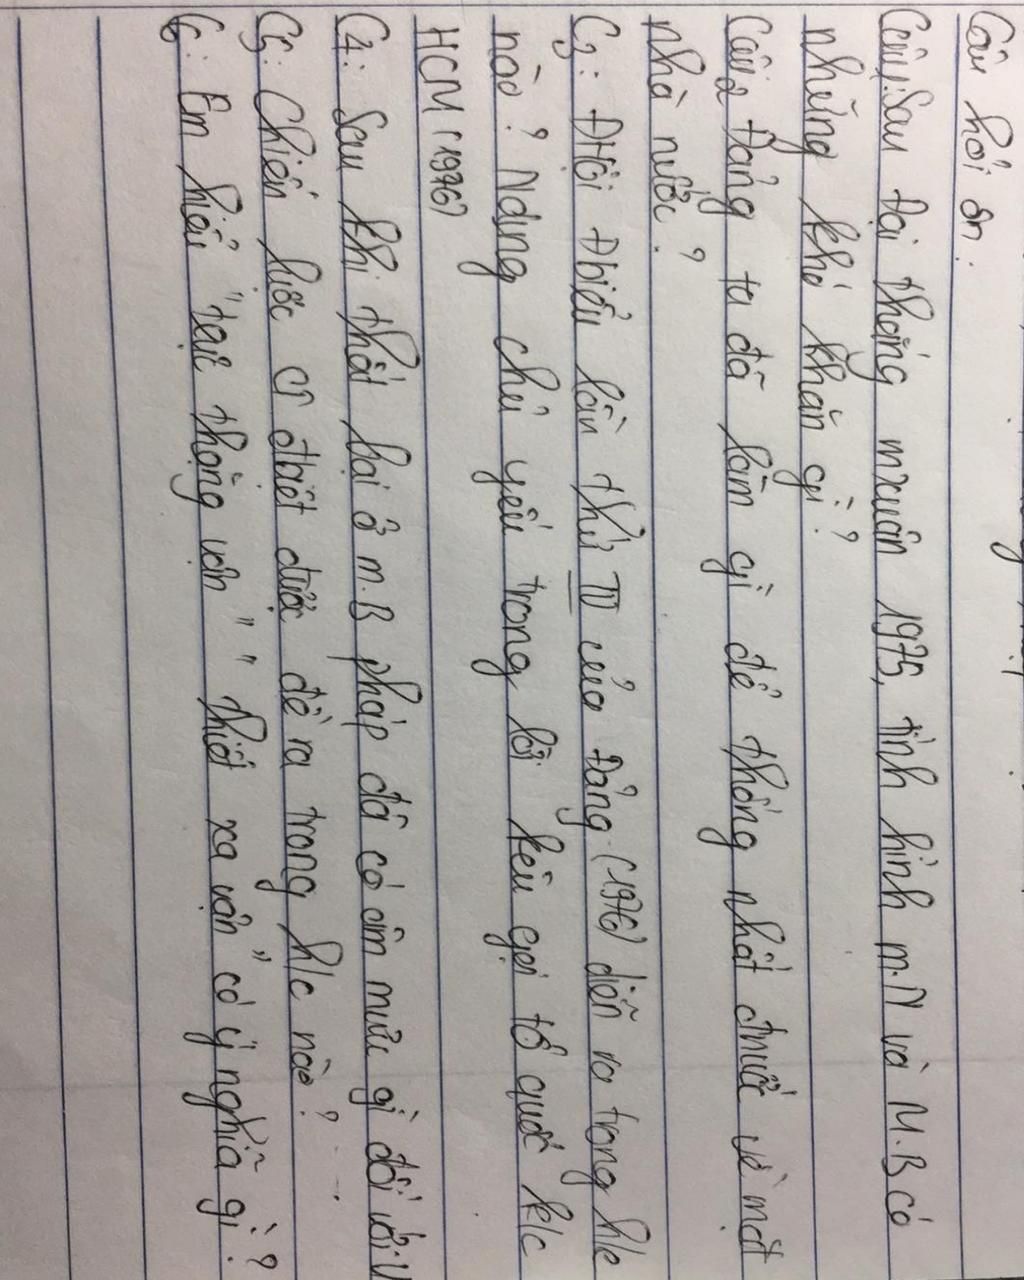 Câu hỏi ôn:
Câu1: Sau đại thắng mxuân 1975, tình hình m.N và M.B có
những khó khăn gì?
Câu2 Đảng ta đã làm gì để thống nhất đnước về mặt
nhà nước?
C3: ĐHội Đbiểu lần thứ IV của Đảng (1976) diễn ra trong h/c
nào? Ndung chủ yếu trong lời kêu gọi tổ quốc k/c
HCM (1976)
C4: Sau khi thất bại ở m.B pháp đã có âm mưu gì đối với V
C5: Chiến lược cr đbiệt được đề ra trong h/c nào? ....
C6: Em hiểu "tại thặng vận" " thiết xa vận" có ý nghĩa gì?